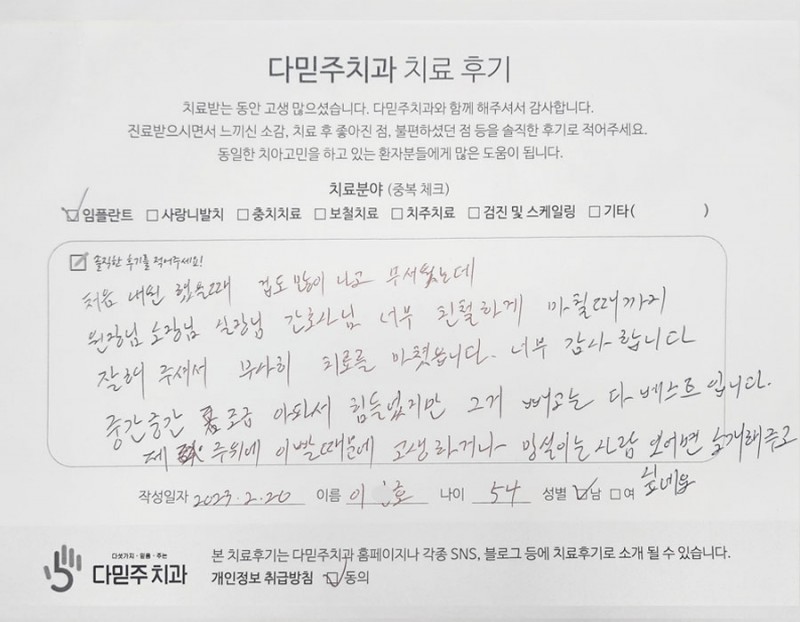 다믿주치과 치료 후기
치료받는 동안 고생 많으셨습니다. 다믿주치과와 함께 해주셔서 감사합니다.
진료받으시면서 느끼신 소감, 치료 후 좋아진 점, 불편하셨던 점 등을 솔직한 후기로 적어주세요.
동일한 치아고민을 하고 있는 환자분들에게 많은 도움이 됩니다.
치료분야 (중복 체크)
☑임플란트 □사랑니발치 □충치치료 □보철치료 □치주치료 □검진 및 스케일링 □기타( )
솔직한 후기를 적어주세요!
처음 내원 했을때 겁도 많이 나고 무서웠는데
원장님 소장님 실장님 간호사님 너무 친절하게 마칠때까지
잘해 주셔서 무사히 치료를 마쳤습니다. 너무 감사 합니다
중간중간 조금 아파서 힘들었지만 그거 빼고는 다 베스트 입니다.
제 주위에 이빨때문에 고생하거나 망설이는 사람 있으면 소개해주고
싶네요
작성일자 2023.2.20 이름 이 호 나이 54 성별 ☑남 □여
다섯가지·믿음·주는
다믿주치과
본 치료후기는 다믿주치과 홈페이지나 각종 SNS, 블로그 등에 치료후기로 소개 될 수 있습니다.
개인정보 취급방침 ☑동의